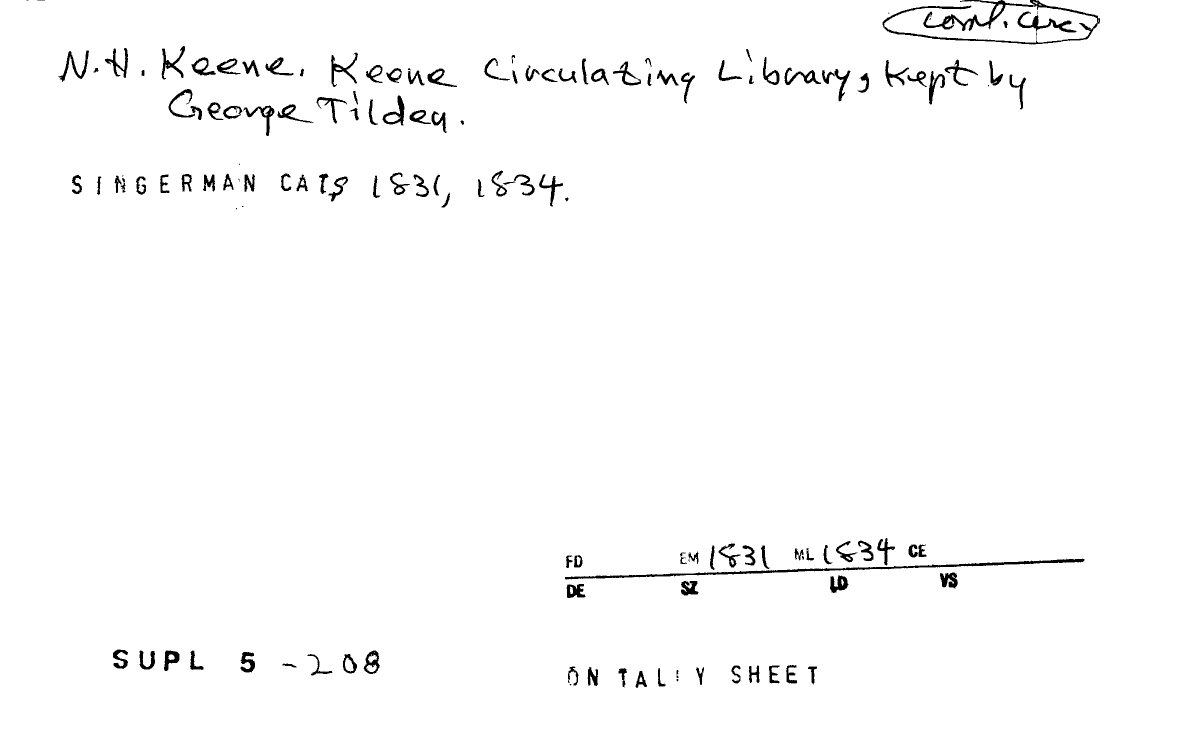 coml. circ
N.H. Keene. Keene Circulating Library, Kept by
George Tilden.
SINGERMAN CATS 1831, 1834.
FD EM 1831 ML 1834 CE
DE SZ LD VS
SUPL 5 -208
ON TALLY SHEET